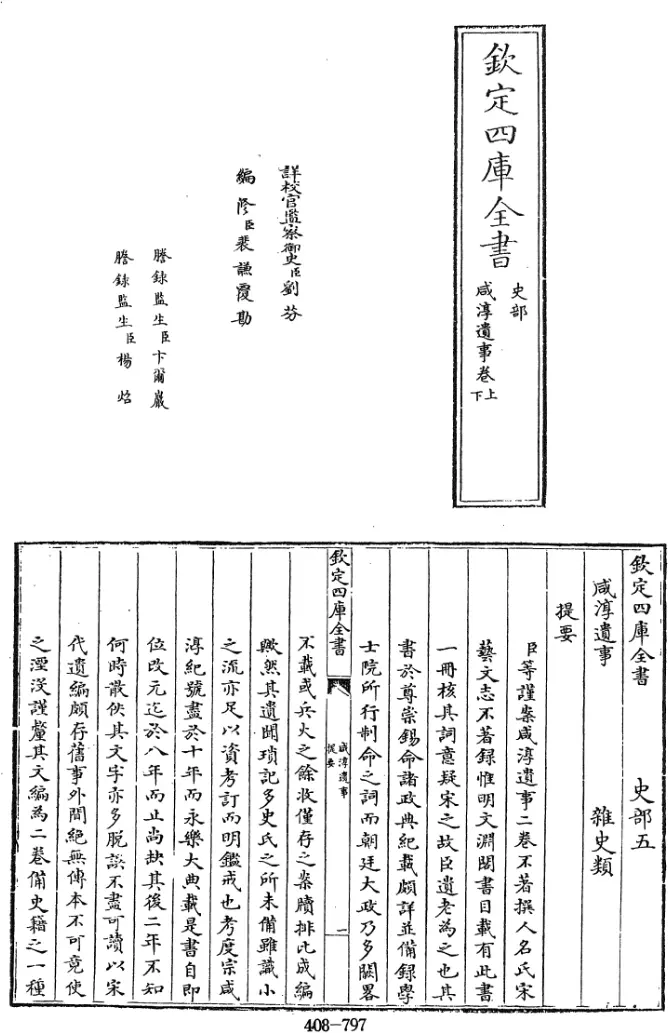 欽定四庫全書
史部
咸淳遺事卷上下
詳校官監察御史臣劉芬
編修臣裴謙覆勘
謄錄監生臣卞爾巖
謄錄監生臣楊炤
欽定四庫全書 史部五
咸淳遺事 雜史類
提要
臣等謹案咸淳遺事二卷不著撰人名氏宋
藝文志不著録惟明文淵閣書目載有此書
一冊核其詞意疑宋之故臣遺老為之也其
書於尊崇錫命諸政典紀載頗詳並備録學
士院所行制命之詞而朝廷大政乃多闕畧
欽定四庫全書
咸淳遺事
提要
一
不載或兵火之餘收僅存之案牘排比成編
歟然其遺聞瑣記多史氏之所未備雖識小
之流亦足以資考訂而明鑑戒也考度宗咸
淳紀號盡於十年而永樂大典載是書自即
位改元迄於八年而止尚缺其後二年不知
何時散佚其文字亦多脫誤不盡可讀以宋
代遺編頗存舊事外間絕無傳本不可竟使
之湮沒謹釐其文編為二卷備史籍之一種
408-797